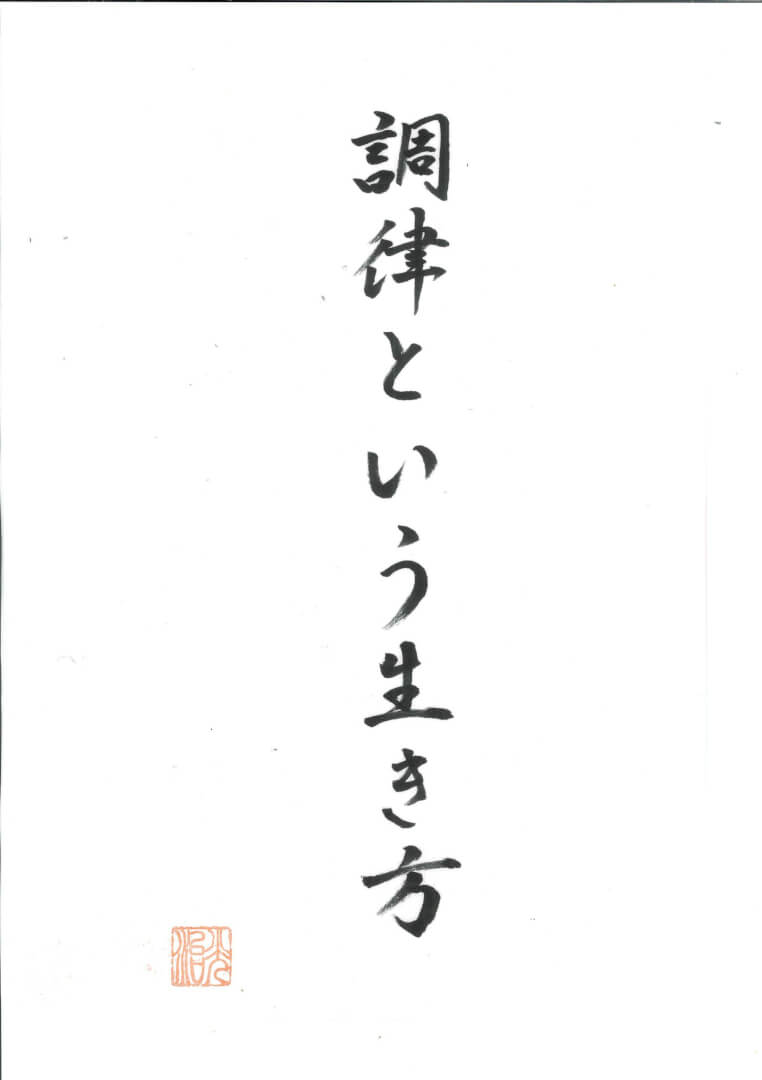 調律という生き方